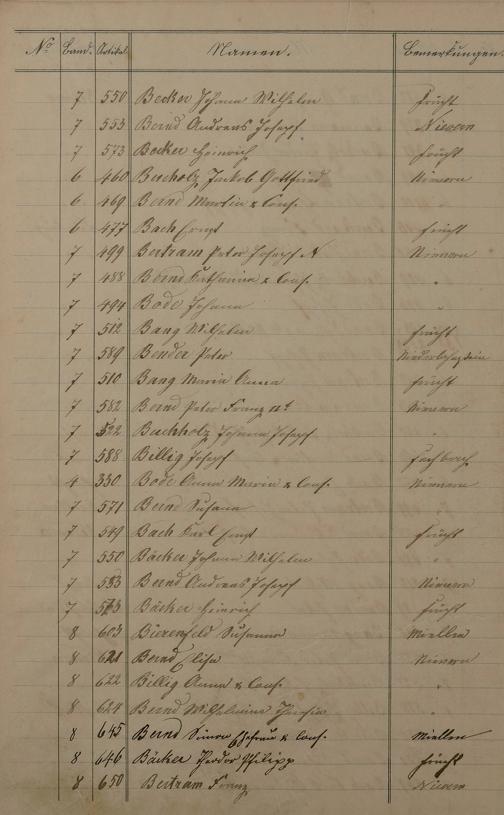 No. Band. Artikel. Namen. Bemerkungen.
7 550 Becker Johann Wilhelm Frücht
7 553 Bernd Andreas Josef Nievern
7 573 Becker Heinrich Frücht
6 460 Buchholz Jackob Gottfried Nievern
6 469 Bernd Martin & Cons. "
6 477 Bach Ernst Frücht
7 499 Bertram Peter Josef Nievern
7 488 Bernd Katharina & Cons. "
7 494 Bode Johann "
7 512 Bang Wilhelm Frücht
7 589 Bender Peter
7 510 Bang Maria Anna Frücht
7 582 Bernd Peter Franz Nievern
7 522 Buchholz Johann Josef "
7 588 Billig Josef Fachbach
4 330 Bode Anna Maria & Cons. Nievern
7 571 Bernd Susana "
7 549 Bach Karl Ernst Frücht
7 550 Bäcker Johann Wilhelm "
7 553 Bernd Andreas Josef Nievern
7 573 Bäcker Heinrich Frücht
8 603 Susanna Miellen
8 621 Bernd Elisa Nievern
8 622 Billig Anna & Cons. "
8 624 Bernd Wilhelmine "
8 645 Bernd Simon & Cons. Miellen
8 646 Bäcker Theodor Philipp Frücht
8 650 Bertram Franz Nievern